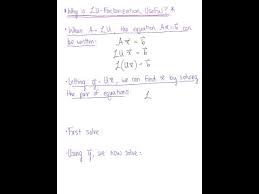 * Why is LU-Factorization Useful? *
• When A = LU, the equation Ax = b can
be written:
Ax = b
LUx = b
L(Ux) = b
• Letting y = Ux, we can find x by solving
the pair of equations: L
• First solve:
• Using y, we now solve: